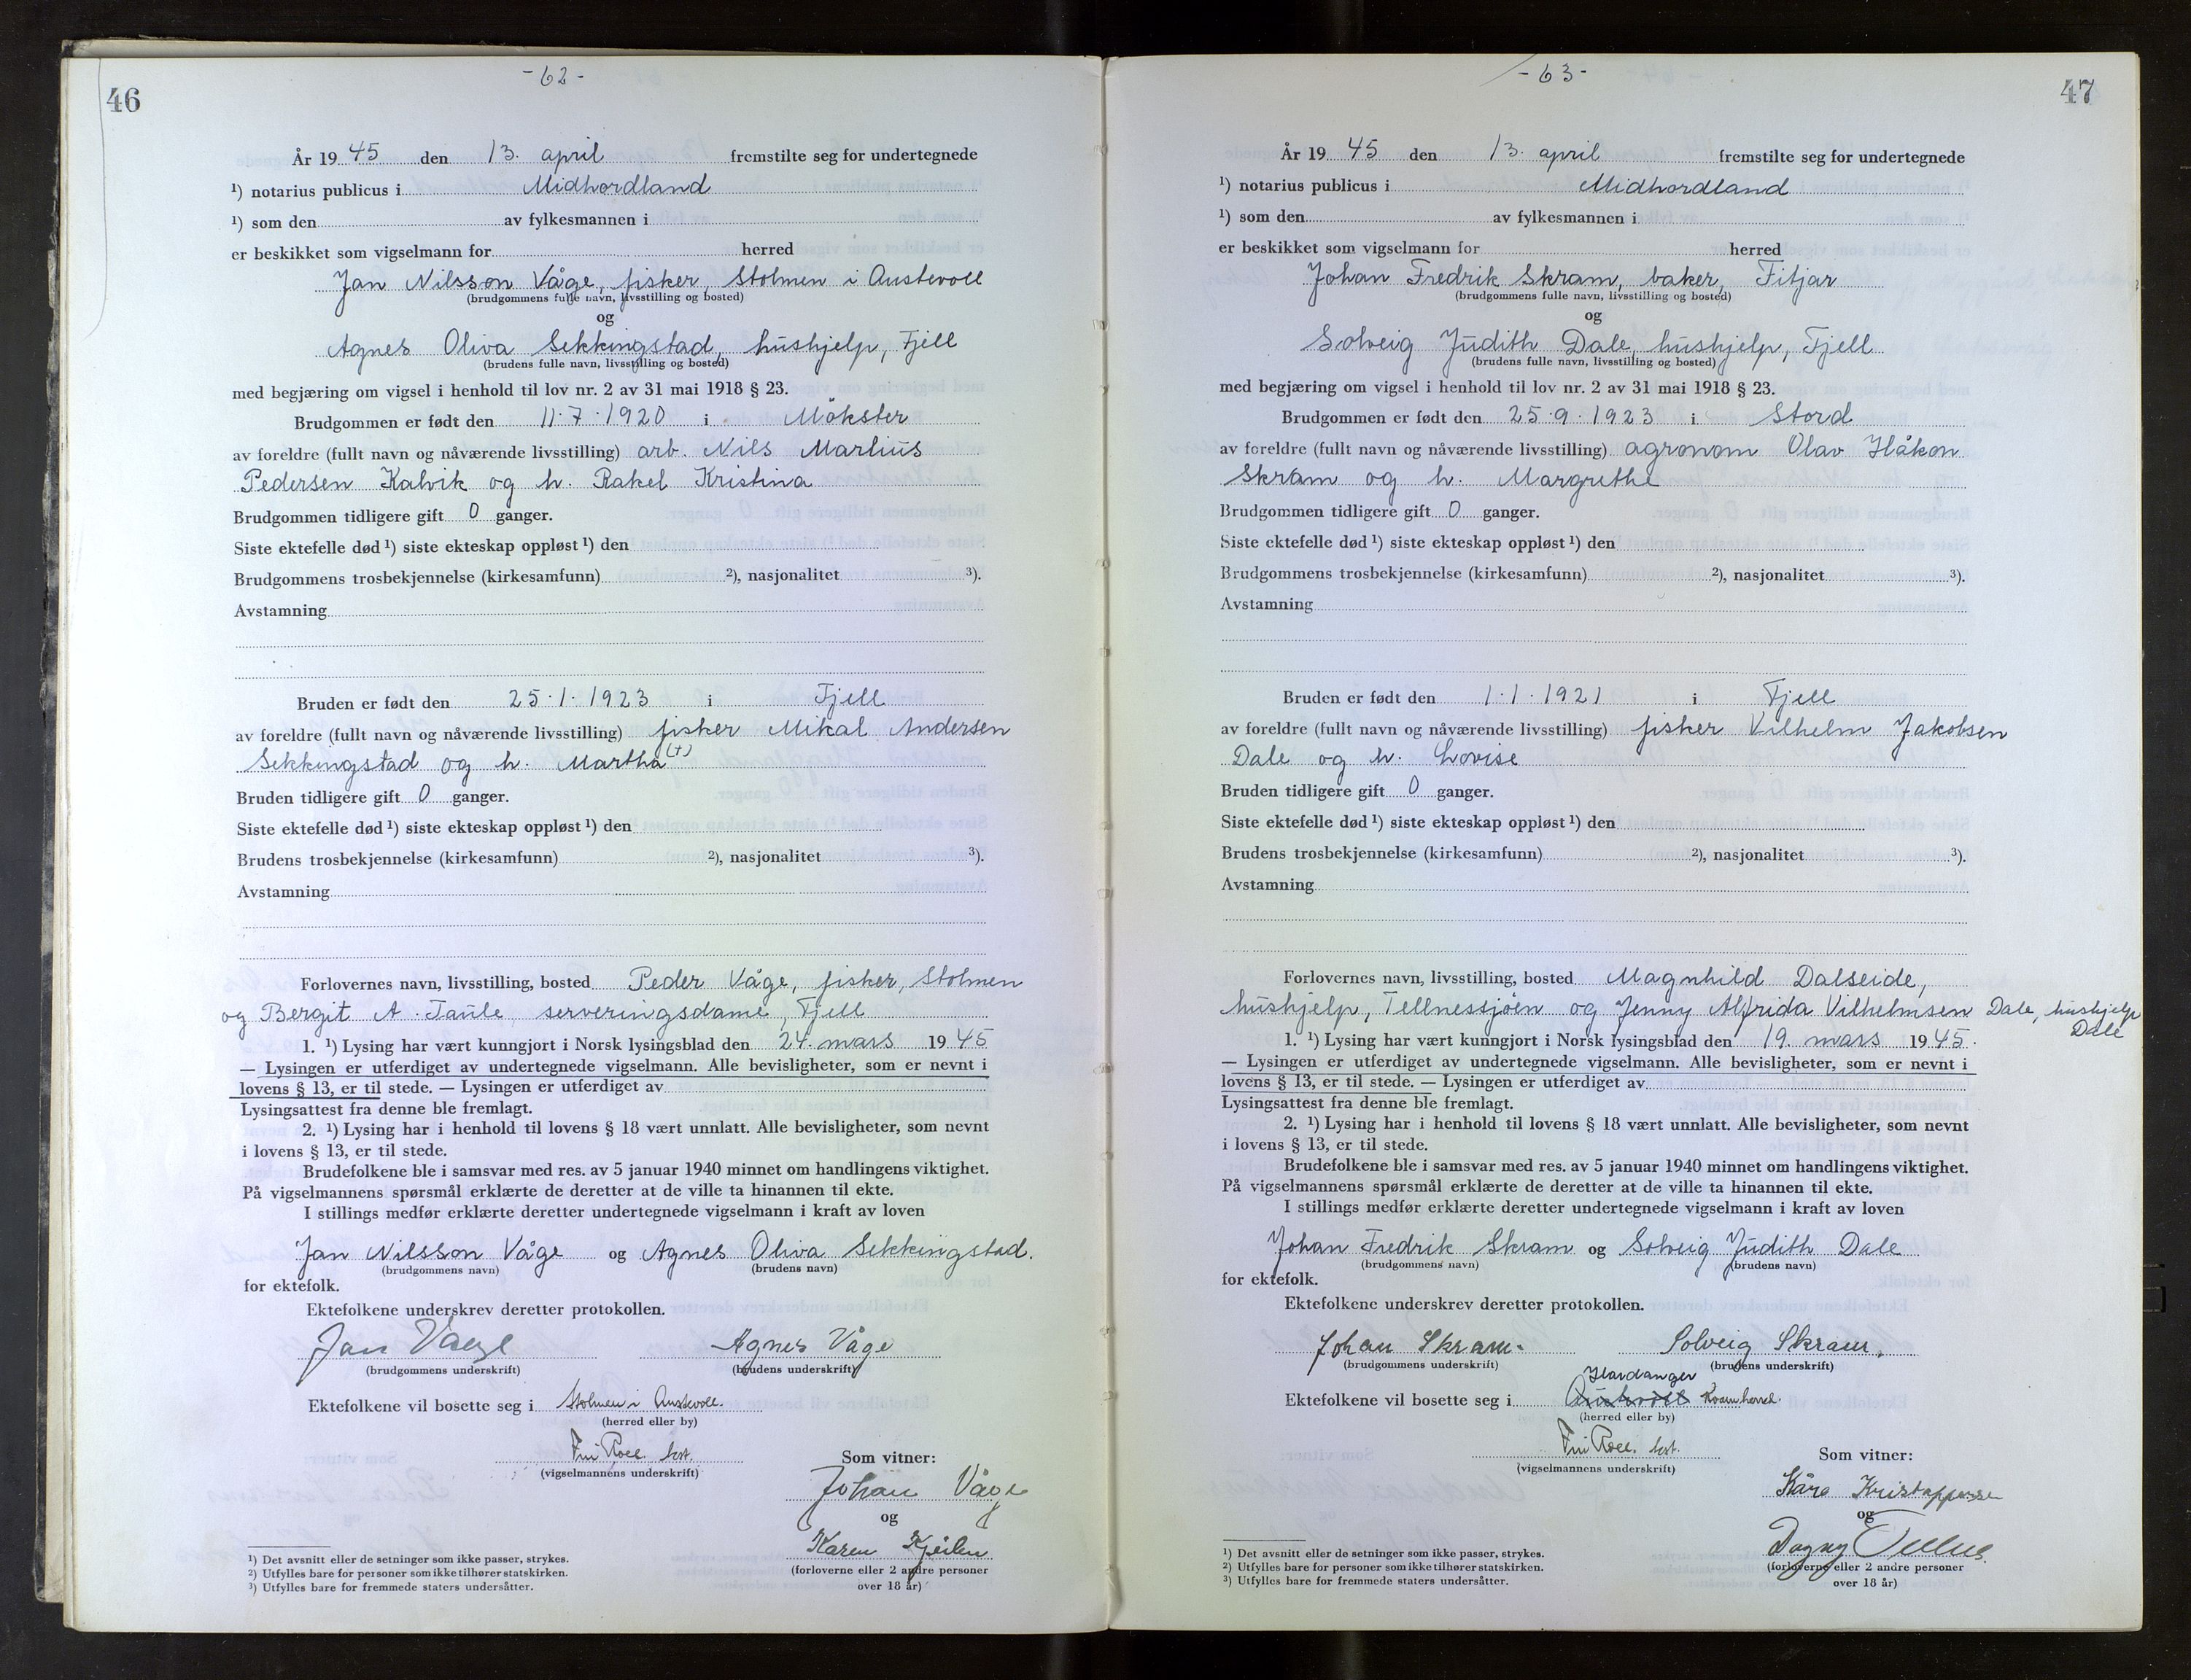 46
- 62 -
År 1945 den 13. april fremstilte seg for undertegnede
¹) notarius publicus i Midhordland
¹) som den av fylkesmannen i
er beskikket som vigselmann for herred
Jan Nilsson Våge, fisker, Stolmen i Austevoll
(brudgommens fulle navn, livsstilling og bosted)
og
Agnes Oliva Sekkingstad, hushjelp, Fjell
(brudens fulle navn, livsstilling og bosted)
med begjæring om vigsel i henhold til lov nr. 2 av 31 mai 1918 § 23.
Brudgommen er født den 11.7.1920 i Møkster
av foreldre (fullt navn og nåværende livsstilling) arb. Nils Martius
Pedersen Kalvik og h. Rakel Kristina
Brudgommen tidligere gift 0 ganger.
Siste ektefelle død ¹) siste ekteskap oppløst ¹) den
Brudgommens trosbekjennelse (kirkesamfunn) ²), nasjonalitet ³).
Avstamning
Bruden er født den 25.1.1923 i Fjell
av foreldre (fullt navn og nåværende livsstilling) fisker Mikal Andersen
Sekkingstad og h. Martha (†)
Bruden tidligere gift 0 ganger.
Siste ektefelle død ¹) siste ekteskap oppløst ¹) den
Brudens trosbekjennelse (kirkesamfunn) ²), nasjonalitet ³).
Avstamning
Forlovernes navn, livsstilling, bosted Peder Våge, fisker, Stolmen
og Bergit A. Taule, serveringsdame, Fjell
1. ¹) Lysing har vært kunngjort i Norsk lysingsblad den 24. mars 1945
— Lysingen er utferdiget av undertegnede vigselmann. Alle bevisligheter, som er nevnt i
lovens § 13, er til stede. — Lysingen er utferdiget av
Lysingsattest fra denne ble fremlagt.
2. ¹) Lysing har i henhold til lovens § 18 vært unnlatt. Alle bevisligheter, som nevnt
i lovens § 13, er til stede.
Brudefolkene ble i samsvar med res. av 5 januar 1940 minnet om handlingens viktighet.
På vigselmannens spørsmål erklærte de deretter at de ville ta hinannen til ekte.
I stillings medfør erklærte deretter undertegnede vigselmann i kraft av loven
Jan Nilsson Våge og Agnes Oliva Sekkingstad.
(brudgommens navn) (brudens navn)
for ektefolk.
Ektefolkene underskrev deretter protokollen.
Jan Vaage Agnes Våge
(brudgommens underskrift) (brudens underskrift)
Ektefolkene vil bosette seg i Stolmen i Austevoll.
(herred eller by)
(vigselmannens underskrift)
Som vitner:
Johan Våge
og
Karen
(forloverne eller 2 andre personer
over 18 år)
¹) Det avsnitt eller de setninger som ikke passer, strykes.
²) Utfylles bare for personer som ikke tilhører statskirken.
³) Utfylles bare for fremmede staters undersåtter.
47
- 63 -
År 1945 den 13. april fremstilte seg for undertegnede
¹) notarius publicus i Midhordland
¹) som den av fylkesmannen i
er beskikket som vigselmann for herred
Johan Fredrik Skram, baker, Fitjar
(brudgommens fulle navn, livsstilling og bosted)
og
Solveig Judith Dale, hushjelp, Fjell
(brudens fulle navn, livsstilling og bosted)
med begjæring om vigsel i henhold til lov nr. 2 av 31 mai 1918 § 23.
Brudgommen er født den 25.9.1923 i Stord
av foreldre (fullt navn og nåværende livsstilling) agronom Olav Håkon
Skram og h. Margrethe
Brudgommen tidligere gift 0 ganger.
Siste ektefelle død ¹) siste ekteskap oppløst ¹) den
Brudgommens trosbekjennelse (kirkesamfunn) ²), nasjonalitet ³).
Avstamning
Bruden er født den 1.1.1921 i Fjell
av foreldre (fullt navn og nåværende livsstilling) fisker Vilhelm Jakobsen
Dale og h. Lovise
Bruden tidligere gift 0 ganger.
Siste ektefelle død ¹) siste ekteskap oppløst ¹) den
Brudens trosbekjennelse (kirkesamfunn) ²), nasjonalitet ³).
Avstamning
Forlovernes navn, livsstilling, bosted Magnhild Dalseide,
hushjelp, Tellnessjøen og Jenny Alfrida Vilhelmsen Dale, hushjelp
Dale
1. ¹) Lysing har vært kunngjort i Norsk lysingsblad den 19. mars 1945.
— Lysingen er utferdiget av undertegnede vigselmann. Alle bevisligheter, som er nevnt i
lovens § 13, er til stede. — Lysingen er utferdiget av
Lysingsattest fra denne ble fremlagt.
2. ¹) Lysing har i henhold til lovens § 18 vært unnlatt. Alle bevisligheter, som nevnt
i lovens § 13, er til stede.
Brudefolkene ble i samsvar med res. av 5 januar 1940 minnet om handlingens viktighet.
På vigselmannens spørsmål erklærte de deretter at de ville ta hinannen til ekte.
I stillings medfør erklærte deretter undertegnede vigselmann i kraft av loven
Johan Fredrik Skram og Solveig Judith Dale
(brudgommens navn) (brudens navn)
for ektefolk.
Ektefolkene underskrev deretter protokollen.
Johan Skram. Solveig Skram.
(brudgommens underskrift) (brudens underskrift)
Hardanger
Ektefolkene vil bosette seg i Austevoll Kvam herred.
(herred eller by)
(vigselmannens underskrift)
Som vitner:
Kåre Kristoppersen
og
Dagny
(forloverne eller 2 andre personer
over 18 år)
¹) Det avsnitt eller de setninger som ikke passer, strykes.
²) Utfylles bare for personer som ikke tilhører statskirken.
³) Utfylles bare for fremmede staters undersåtter.